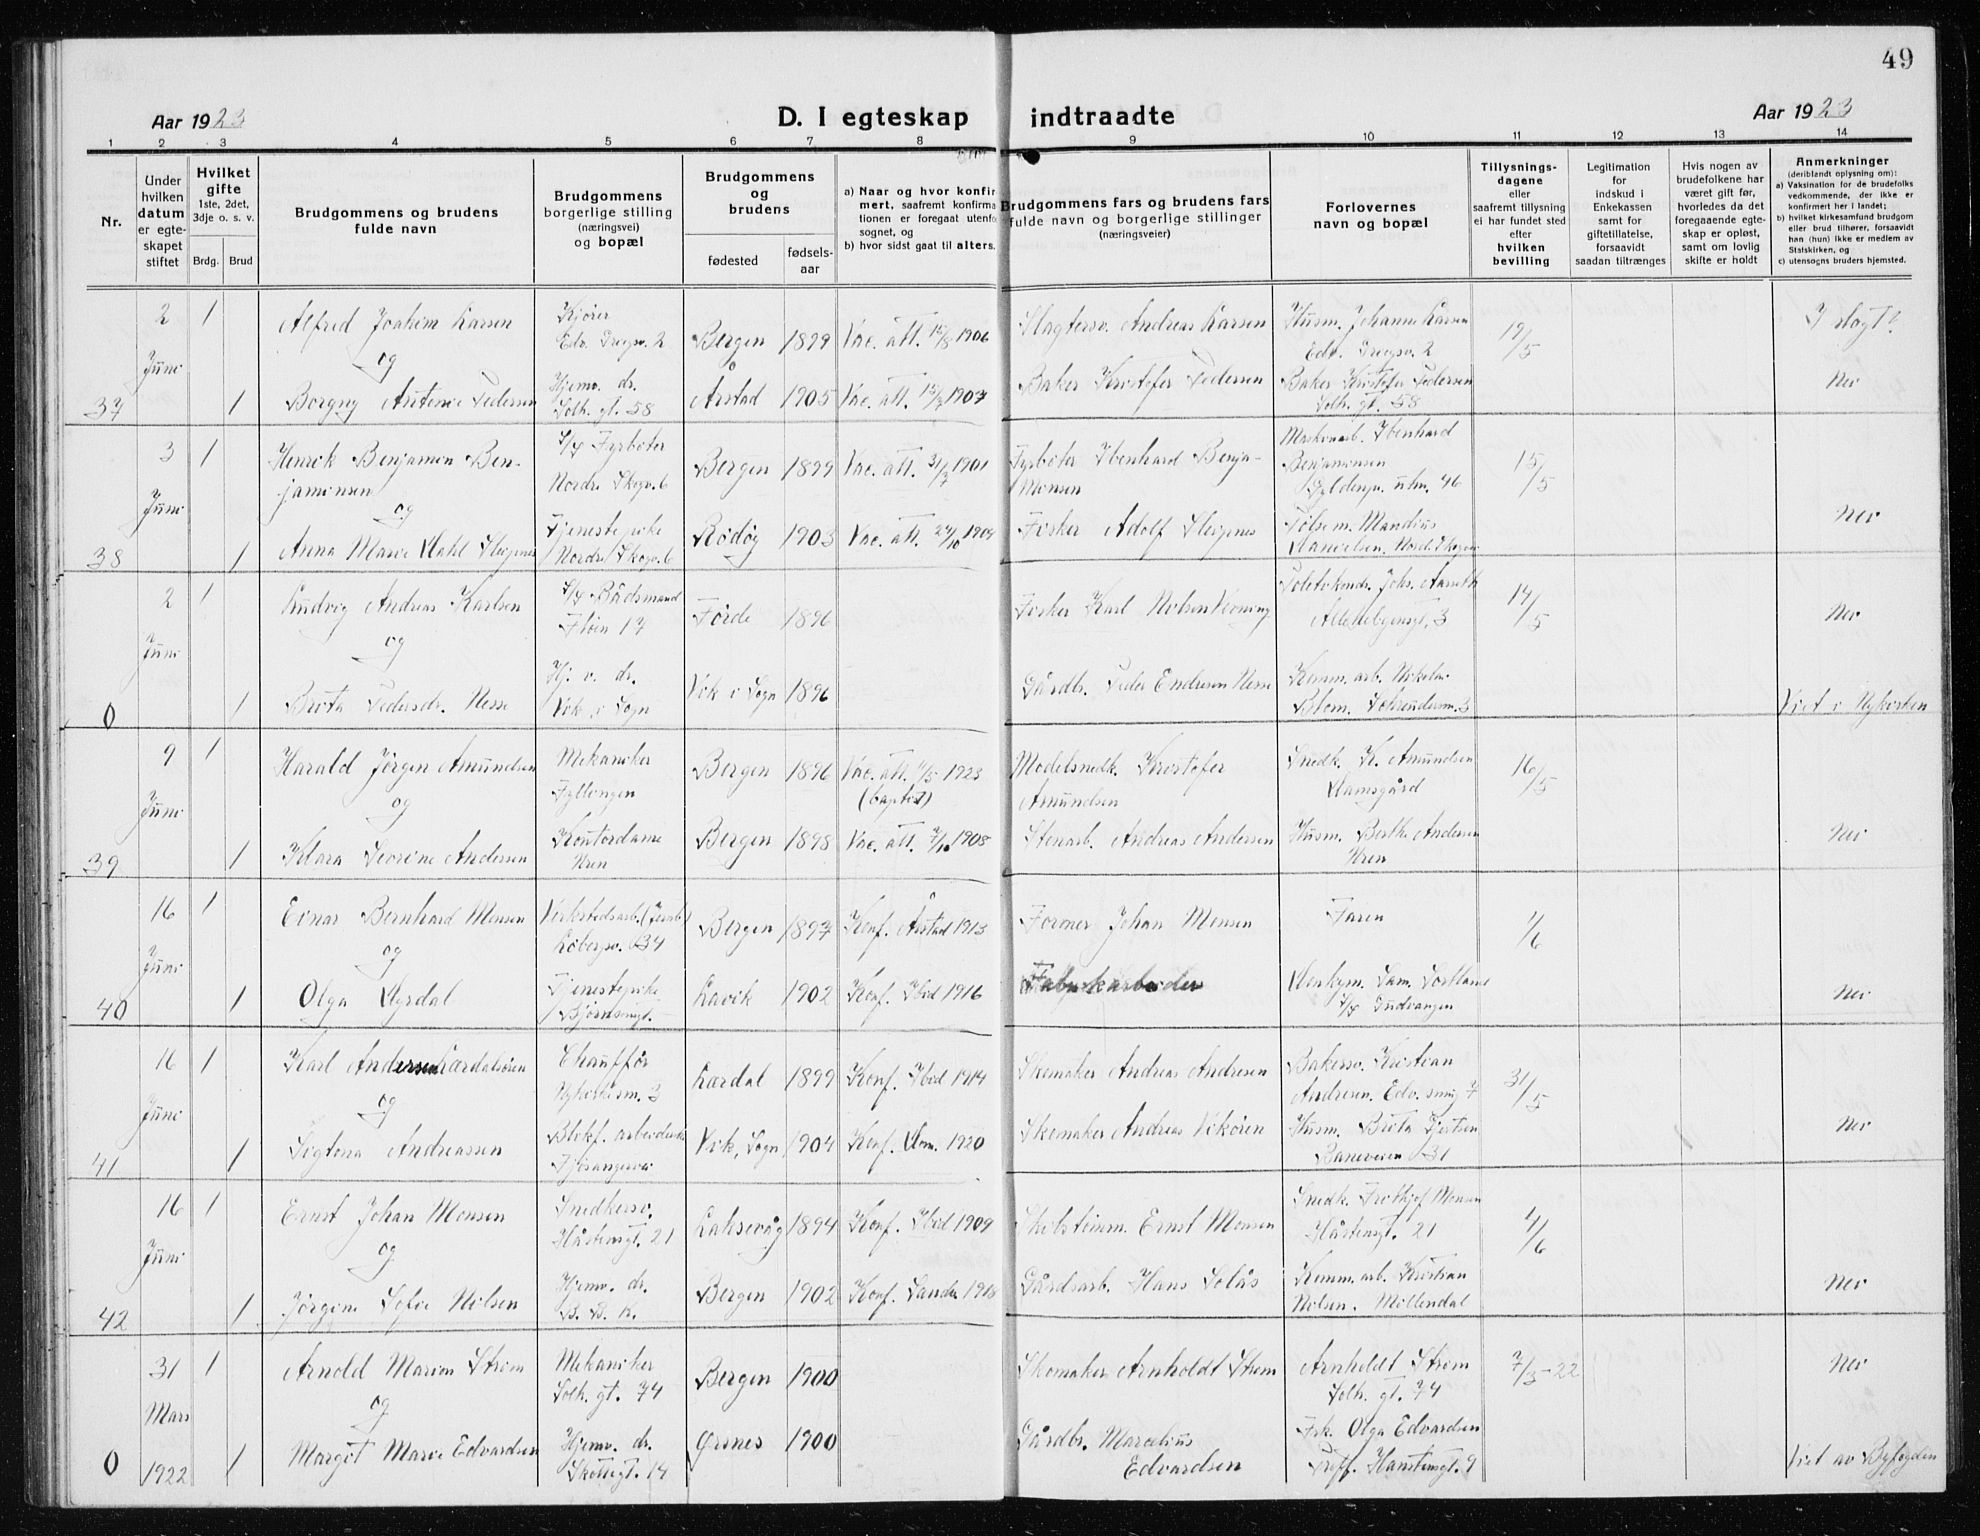 49
Aar 1923
D. I egteskap indtraadte
Aar 1923
1 2 3 4 5 6 7 8 9 10 11 12 13 14
Nr.
Under
hvilken
datum
er egte-
skapet
stiftet
Hvilket
gifte
1ste, 2det,
3dje o. s. v.
Brdg. Brud
Brudgommens og brudens
fulde navn
Brudgommens
borgerlige stilling
(næringsvei)
og bopæl
Brudgommens
og
brudens
fødested
fødsels-
aar
a) Naar og hvor konfir
mert, saafremt konfirma
tionen er foregaat utenfo
sognet, og
b) hvor sidst gaat til alters.
Brudgommens fars og brudens fars
fulde navn og borgerlige stillinger
(næringsveier)
Forlovernes
navn og bopæl
Tillysnings-
dagene
eller
saafremt tillysning
ei har fundet sted
efter
hvilken
bevilling
Legitimation
for
indskud i
Enkekassen
samt for
giftetillatelse,
forsaavidt
saadan tiltrænges
Hvis nogen av
brudefolkene har
været gift før,
hvorledes da det
foregaaende egte-
skap er opløst,
samt om lovlig
skifte er holdt
Anmerkninger
(deriblandt oplysning om):
a) Vaksination for de brudefolks
vedkommende, der ikke er
konfirmert her i landet;
b) hvilket kirkesamfund brudgom
eller brud tilhører, forsaavidt
han (hun) ikke er medlem av
Statskirken, og
c) utensogns bruders hjemsted.
37
2 Juni
1
Alfred Joakim Larsen
Kjører
Edv. Griegsv. 2
Bergen 1899
Vac. att. 15/8 1906
Slagtersv. Andreas Larsen
Husm. Johanne Larsen
Edv. Griegsv. 2
17/5
I slegt?
og
1
Borgny Antonie Pedersen
Hjemv. dr.
Solh. gt. 58
Årstad 1905
Vac. att. 15/7 1907
Baker Kristofer Pedersen
Baker Kristofer Pedersen
Solh. gt. 58
Nei
38
3 Juni
1
Henrik Benjamin Ben-
jaminsen
S/S Fyrbøter
Nordre Skogv. 6
Bergen 1899
Vac. att. 31/7 1901
Fyrbøter Ibenhard Benja-
minsen
Maskinarb. Ibenhard
Benjaminsen
15/5
og
1
Anna Marie Dahl Sleipnes
Tjenestepike
Nordre Skogv. 6
Rødøy 1903
Vac. att. 24/10 1904
Fisker Adolf Sleipnes
Danielsen. Nord. Skogv.
Nei
0
2 Juni
1
Ludvig Andreas Karlsen
S/S Bådsmand
Fløen 17
Førde 1896
Fisker Karl Nilsen
14/5
Nei
og
1
Brita Pedersdr. Nesse
Hj. v. dr.
Vik i Sogn
Vik i Sogn 1896
Gårdbr. Peder Endresen Nesse
Komm. arb. Nikolai
Blom.
Viet i Nykirken
39
9 Juni
1
Harald Jørgen Amundsen
Mekaniker
Fyllingen
Bergen 1896
Vac. att. 11/5 1923
(baptist)
Modelsnedk. Kristofer
Amundsen
Snedk. K. Amundsen
Damsgård
16/5
og
1
Klara Severine Andersen
Kontordame
Kren
Bergen 1898
Vac. att. 7/10 1908
Stenarb. Andreas Andersen
Husm. Berthe Andersen
Kren
Nei
40
16 Juni
1
Einar Bernhard Monsen
Løbergsv. 34
Bergen 1897
Konf. Årstad 1913
Former Johan Monsen
Faren
1/6
og
1
Olga Dyrdal
Tjenestepike
Bjørnsongt.
Lavik 1902
Konf. Ibid 1916
Fabrikarbeider
S/S Gudvangen
Nei
41
16 Juni
1
Karl Andersen Lærdalsøren
Chauffør
Nykirkesm. 3
Lærdal 1899
Konf. Ibid 1914
Skomaker Andreas Andresen
Bakersv. Kristian
Andresen. Edv. smug 7
31/5
og
1
Sigtona Andreassen
Blikf. arbeiderske
Fjøsangervei
Vik, Sogn 1904
Konf. Dom. 1920
Skomaker Andreas Vikøren
Husm. Brita Gjertsen
Baneveien 31
Nei
42
16 Juni
1
Ernst Johan Monsen
Snedkersv.
Håsteinsgt. 21
Laksevåg 1894
Konf. Ibid 1909
Skibstømm. Ernst Monsen
Snedk. Frithjof Monsen
Håsteinsgt. 21
4/6
og
1
Jørgine Sofie Nilsen
Hjemv. dr.
B. B. K.
Bergen 1902
Konf. Sandv. 1918
Gårdsarb. Hans Solås
Komm. arb. Kristian
Nilsen. Møllendal
Nei
0
31 Mars 1922
1
Arnold Marion Strøm
Mekaniker
Solh. gt. 74
Bergen 1900
Skomaker Arnholdt Strøm
Arnholdt Strøm
Solh. gt. 74
7/3-22
Nei
og
1
Margit Marie Edvardsen
Hjemv. dr.
Skottegt. 14
Ørsnes 1900
Gårdbr. Marcelius
Edvardsen
Frk. Olga Edvardsen
Viet av Byfogden